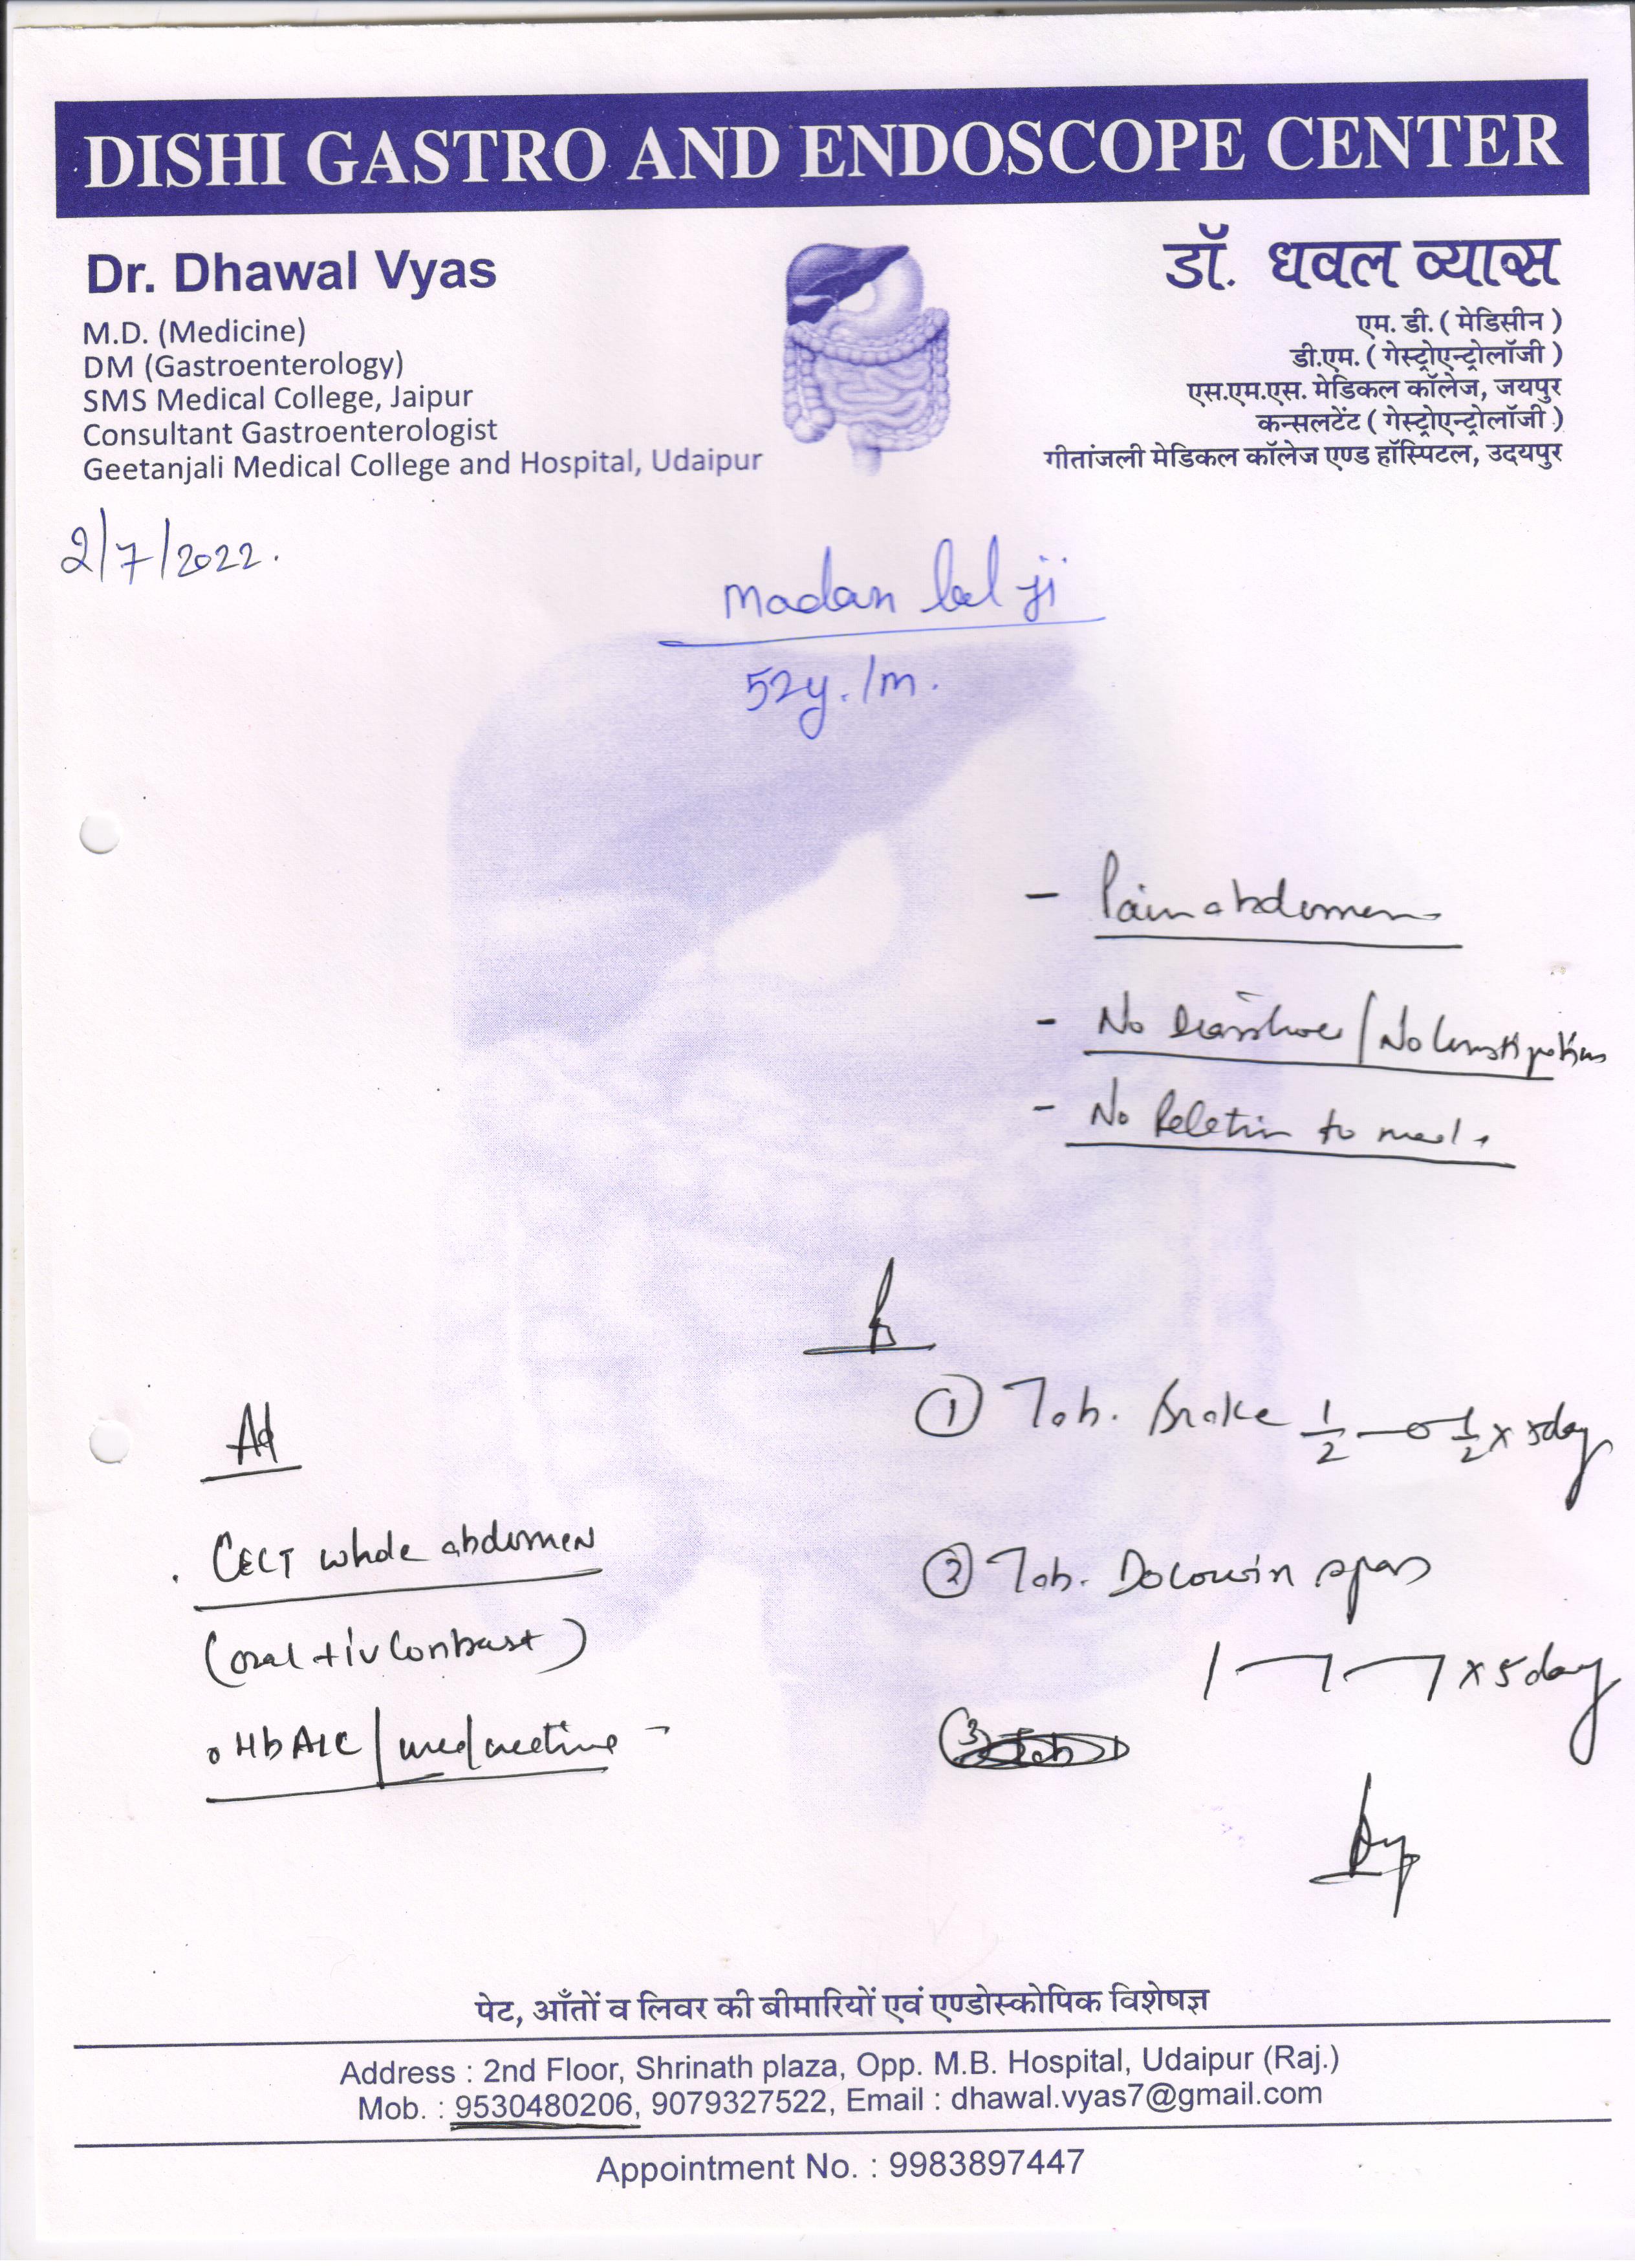 DISHI GASTRO AND ENDOSCOPE CENTER
Dr. Dhawal Vyas
M.D. (Medicine)
DM (Gastroenterology)
SMS Medical College, Jaipur
Consultant Gastroenterologist
Geetanjali Medical College and Hospital, Udaipur
डॉ. धवल व्यास
एम. डी. ( मेडिसीन )
डी.एम. ( गेस्ट्रोएन्ट्रोलॉजी )
एस.एम.एस. मेडिकल कॉलेज, जयपुर
कन्सलटेंट ( गेस्ट्रोएन्ट्रोलॉजी )
गीतांजली मेडिकल कॉलेज एण्ड हॉस्पिटल, उदयपुर
2/7/2022.
madan lal ji
52y./m.
- Pain abdomen
- No Diarrhoea / No Constipation
- No Relation to meal.
Ad
. CECT whole abdomen
(oral + iv Contrast)
① Tab. 1/2 — 0 1/2 x 5 day
② Tab. spas
x 5 day
③
पेट, आँतों व लिवर की बीमारियों एवं एण्डोस्कोपिक विशेषज्ञ
Address : 2nd Floor, Shrinath plaza, Opp. M.B. Hospital, Udaipur (Raj.)
Mob. : 9530480206, 9079327522, Email : dhawal.vyas7@gmail.com
Appointment No. : 9983897447